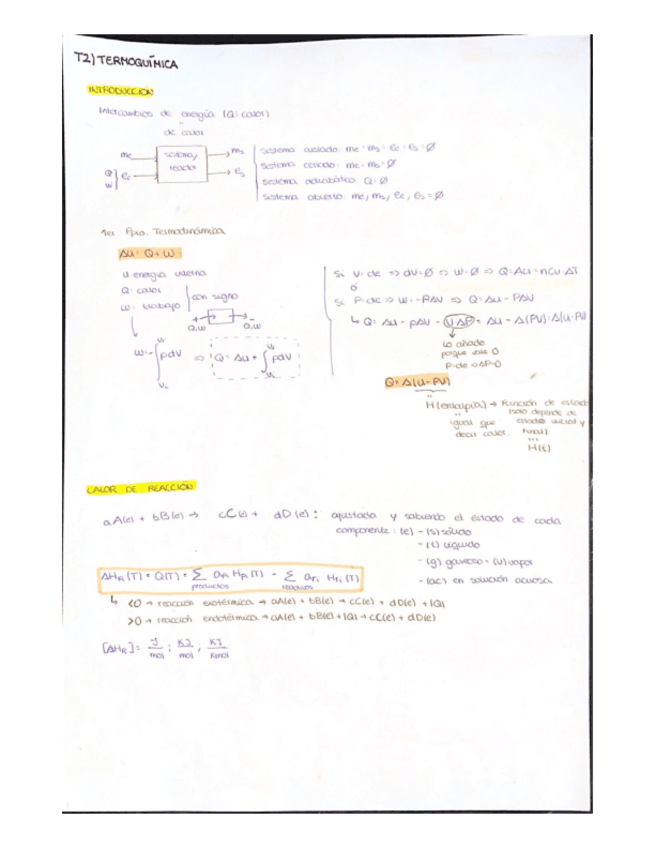 T2) TERMOQUÍMICA
INTRODUCCION
Intercambios de energía (Q: calor)
de calor
me
Q
W
ec
sistema/
reactor
ms
es
sistema aislado: me = ms = ec = es = Ø
sistema cerrado: me = ms = Ø
sistema adiabático: Q = Ø
sistema abierto: me, ms, ec, es = Ø
1er Ppio. Termodinámica
ΔU = Q + W
U energía interna
Q: calor
W: trabajo
con signo
+ Q,W
- Q,W
W = - ∫ pdV ⇒ Q = Δu + ∫ pdV
Si V: cte ⇒ dV = Ø ⇒ W = Ø ⇒ Q = ΔU = nCv ΔT
ó
Si P: cte ⇒ W = -PΔV ⇒ Q = ΔU - PΔV
↳ Q = ΔU - pΔV - V·ΔP = ΔU - Δ(PV) = Δ(U-PV)
Lo añado
porque vale 0
P: cte ⇒ ΔP=0
Q = Δ(U-PV)
H (entalpía) → Función de estado
(solo depende de
igual que
estado inicial y
decir calor.
final)
H(t)
CALOR DE REACCIÓN
aA(e) + bB(e) → cC(e) + dD(e) : ajustada y sabiendo el estado de cada
componente: (e) - (s) sólido
- (l) líquido
- (g) gaseoso = (v) vapor
- (ac) en solución acuosa
ΔHR (T) = Q(T) = Σ api Hpi (T) - Σ ari Hri (T)
productos
reactivos
↳ <0 → reacción exotérmica → aA(e) + bB(e) → cC(e) + dD(e) + |Q|
>0 → reacción endotérmica → aA(e) + bB(e) + |Q| → cC(e) + dD(e)
[ΔHR] = J/mol ; KJ/mol ; KJ/Kmol